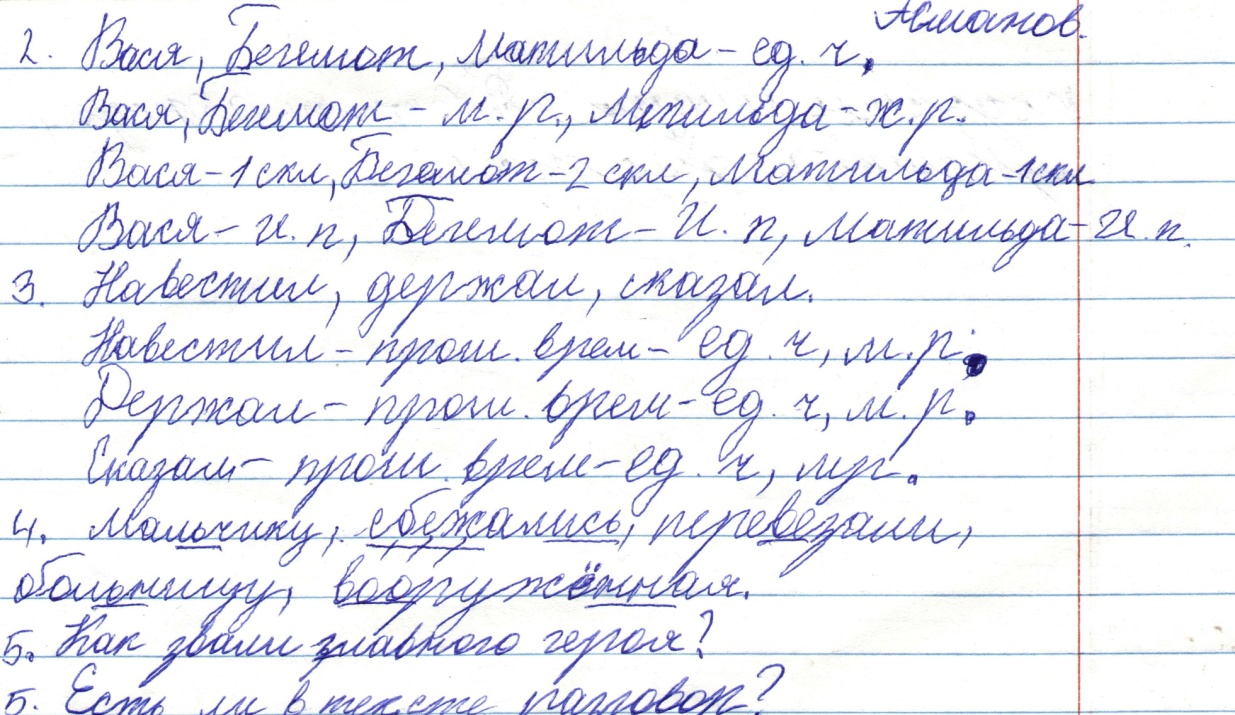 Асманов.
2. Вася, Бегемот, Матильда – ед. ч.
Вася, Бегемот – м. р., Матильда – ж. р.
Вася – 1 скл, Бегемот – 2 скл, Матильда – 1 скл
Вася – И. п, Бегемот – И. п, Матильда – И. п.
3. Навестил, держал, сказал.
Навестил – прош. врем – ед. ч, м. р.
Держал – прош. врем – ед. ч, м. р.
Сказал – прош. врем – ед. ч, м.р.
4. Мальчику, сбежались, перевезали,
больницу, вооружённая.
5. Как звали главного героя?
5. Есть ли в тексте разговор?